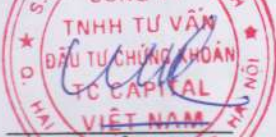 TNHH TƯ VẤN
ĐẦU TƯ CHỨNG KHOÁN
TC CAPITAL
VIỆT NAM
Q. HAI
HÀ NỘI